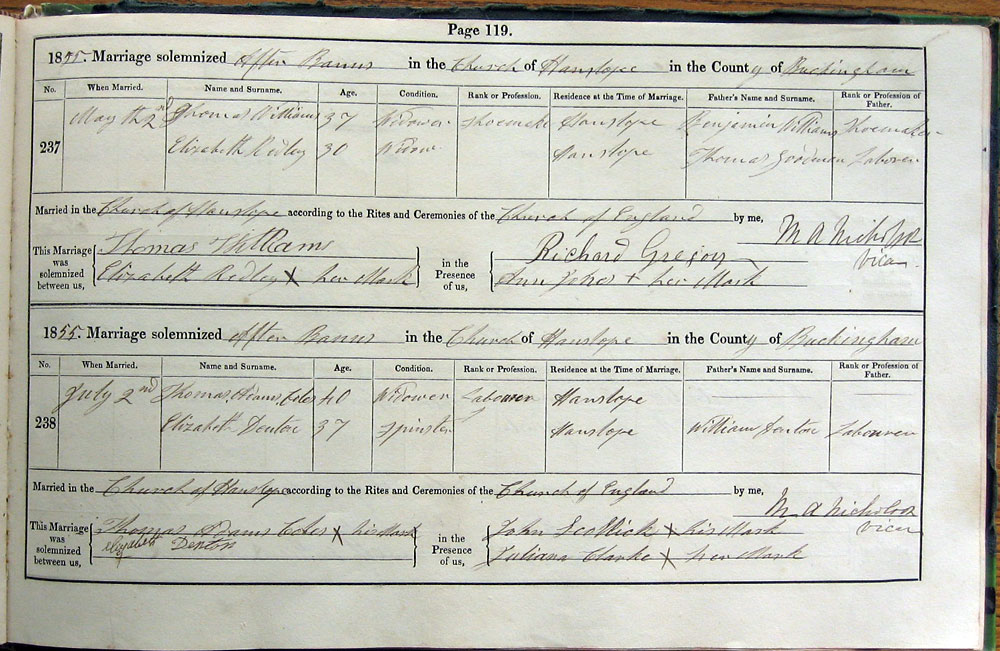 Page 119.
1855. Marriage solemnized After Banns in the Church of Hanslope in the County of Buckingham
No. When Married. Name and Surname. Age. Condition. Rank or Profession. Residence at the Time of Marriage. Father's Name and Surname. Rank or Profession of Father.
237 May the 2nd Thomas Williams 37 Widower Shoemaker Hanslope Benjamin Williams Shoemaker
Elizabeth Ridley 30 Widow Hanslope Thomas Goodman Laborer
Married in the Church of Hanslope according to the Rites and Ceremonies of the Church of England by me,
M A Nicholson
Vicar
This Marriage was solemnized between us, Thomas Williams in the Presence of us, Richard Gregory
Elizabeth Redley X her Mark Ann Jones + her Mark
1855. Marriage solemnized After Banns in the Church of Hanslope in the County of Buckingham
No. When Married. Name and Surname. Age. Condition. Rank or Profession. Residence at the Time of Marriage. Father's Name and Surname. Rank or Profession of Father.
238 July 2nd Thomas Adams Coles 40 Widower Labourer Hanslope
Elizabeth Denton 37 Spinster Hanslope William Denton Labourer
Married in the Church of Hanslope according to the Rites and Ceremonies of the Church of England by me,
M A Nicholson
Vicar
This Marriage was solemnized between us, Thomas Adams Coles X his Mark in the Presence of us, John X his Mark
Elizabeth Denton Juliana Clarke X her Mark